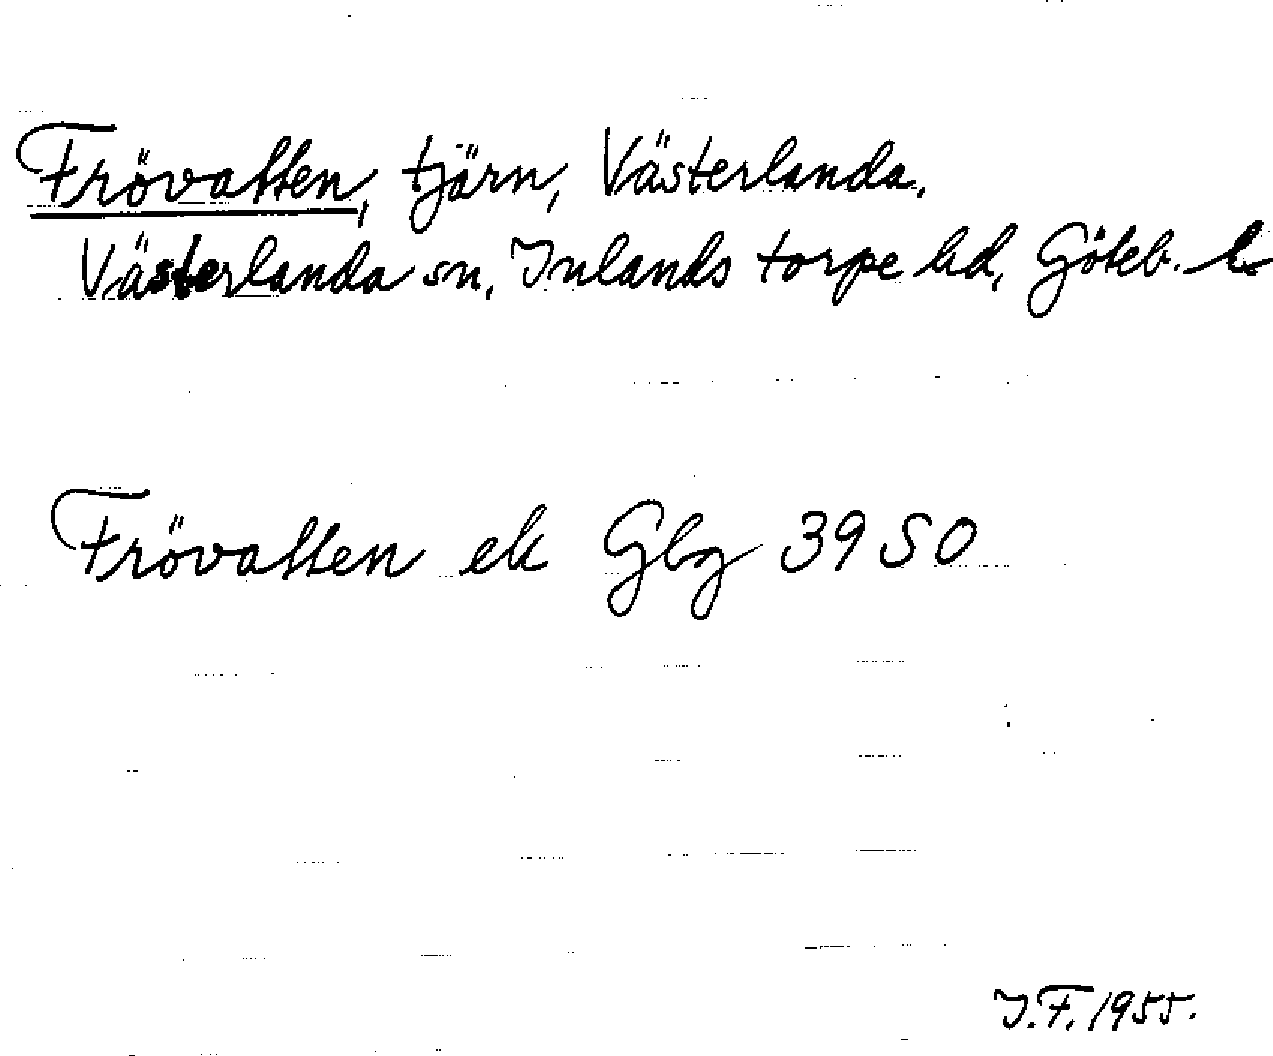 Frövatten, tjärn, Västerlanda,
Västerlanda sn, Inlands torpe hd, Göteb. l.
Frövatten ek Gbg 39 SO
J.F. 1955.